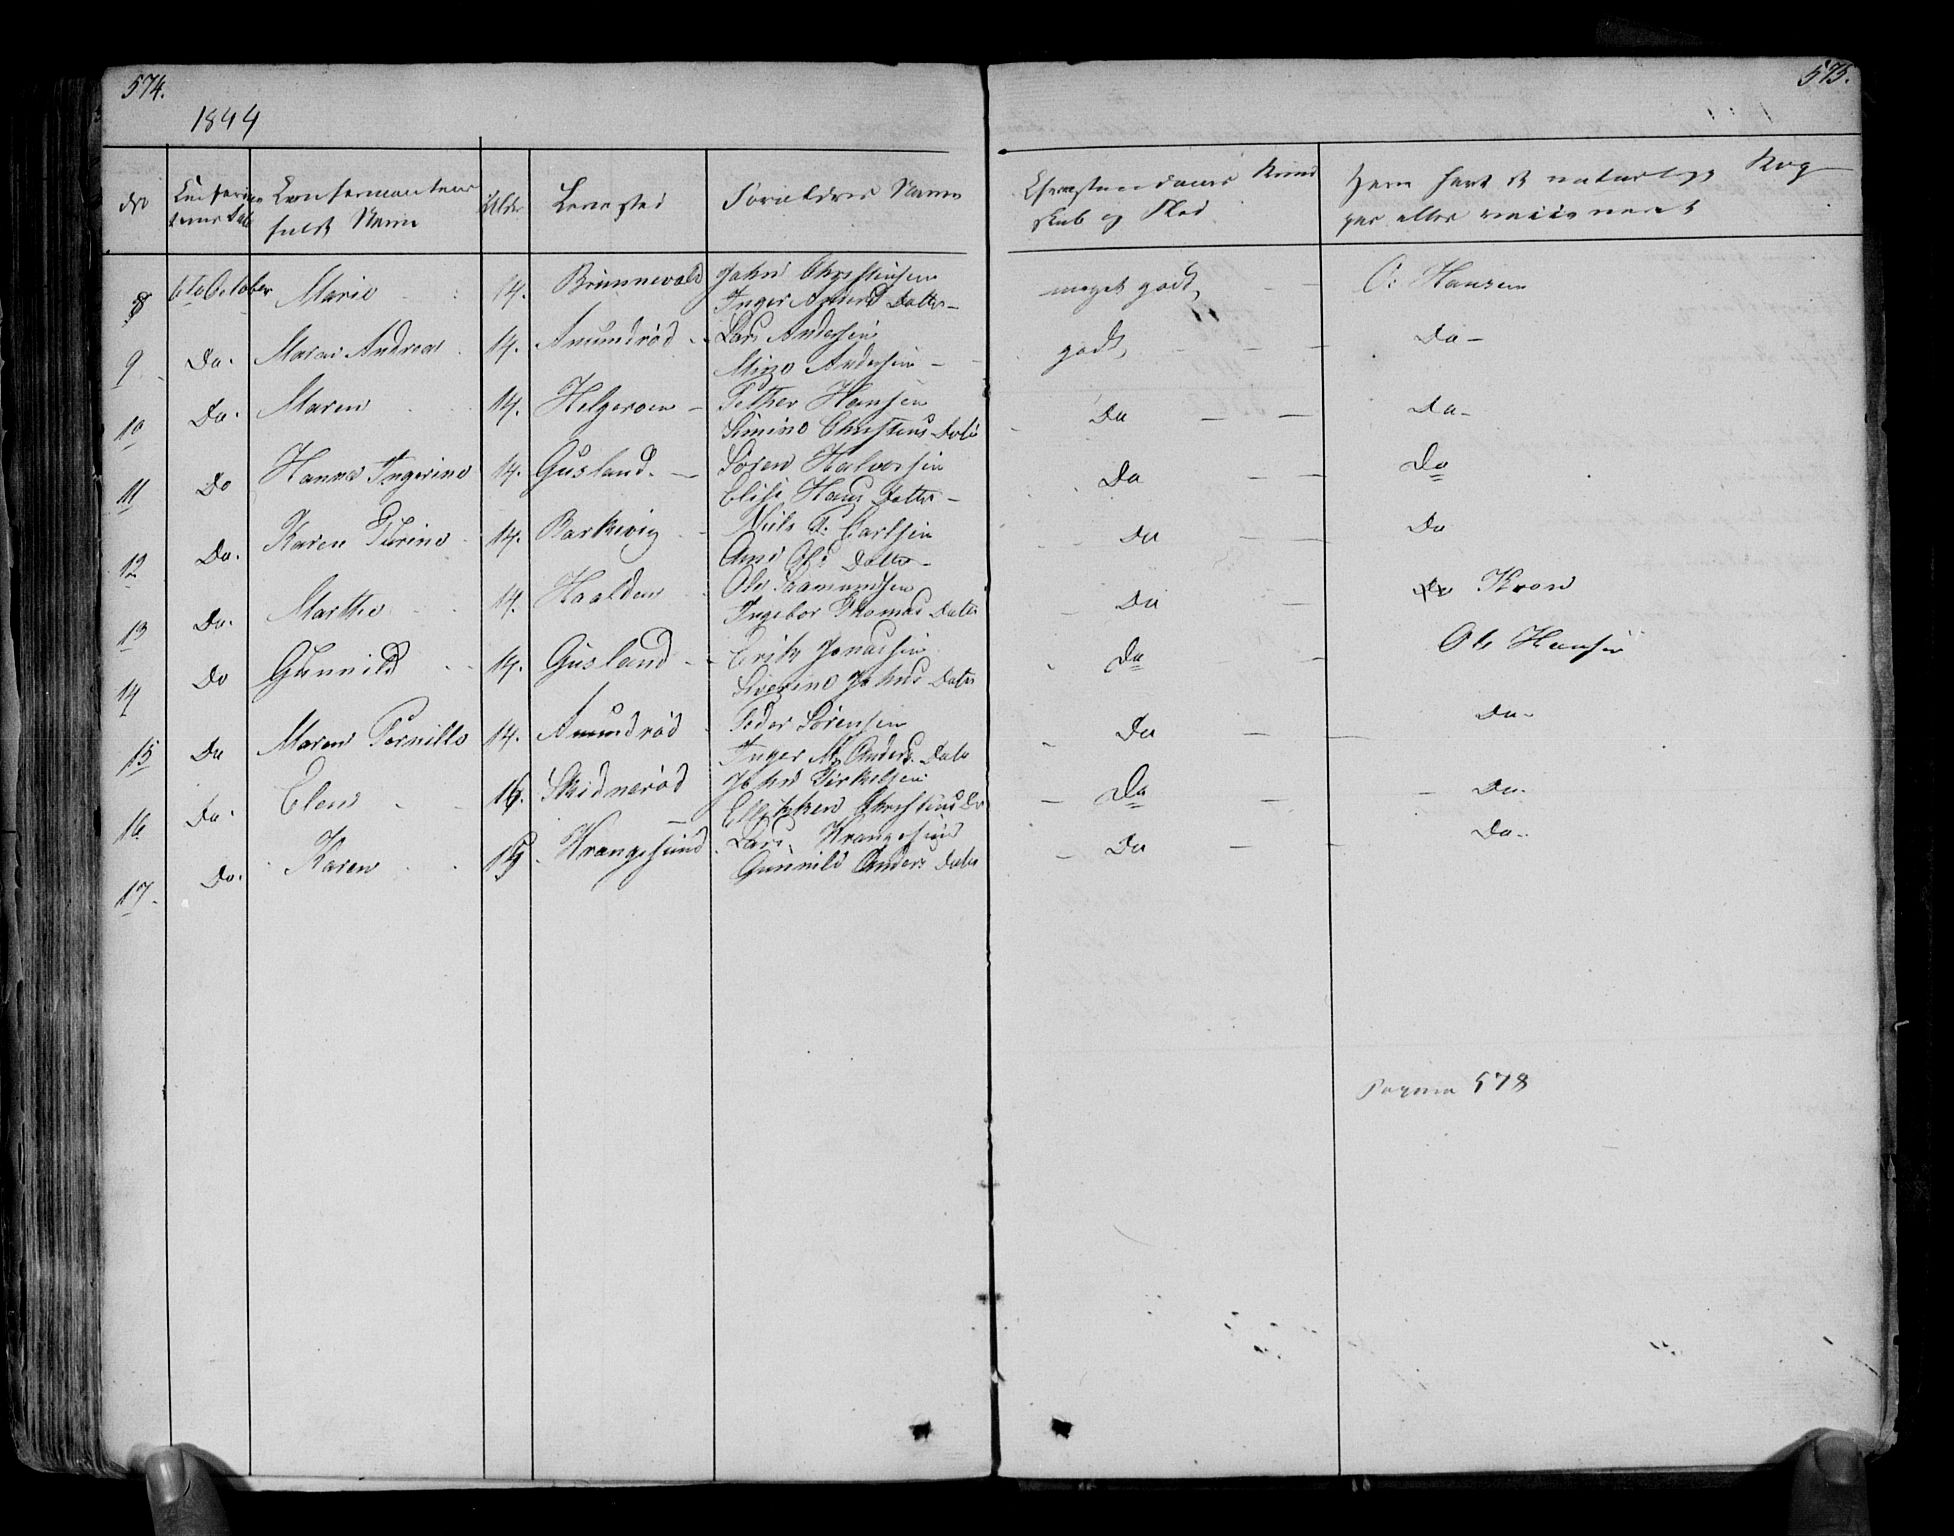 574.
575.
1844
No
Confirmationens Dato
Confirmantens
fulde Navn
Alder
Levested
Forældres Navne
Christendoms Kund
skab og Flid
Hvem har
naturlige Kop
per eller vaccineret
8 6te October Marie 14. Brunnevald John Christensen
Inger Datter meget godt, O: Hansen
9 Do. Maren Andrea 14. Amundrød Lars Andersen
Andersen godt, Do
10 Do. Maren 14. Helgeroen Petter Hansen
Christens Dat Do Do
11 Do Hanna Ingerine 14. Gusland. Søren Halvorsen
Elise Hans Datter Do Do
12 Do. Karen Thrine 14. Barkevig Niels P. Carlsen
Ane Ols Datter Do Do
13 Do. Marthe 14. Haalden Ole Saamundsen
Ingebor Thomas Datter Do Kron
14 Do Gunnild 14. Gusland Erik Jonassen
Siverine Johns Datter Do Ole Hansen
15 Do Maren Pernille 14. Amundrød Peder Sørensen
Inger M. Anders. Datter Do Do.
16 Do. Elen 16. Skidnerød John Tirkelsen
Christens Do Do Do.
17. Do. Karen 15. Krangsund Lars Krangesund
Gunnild Anders Datter Do Do.
578